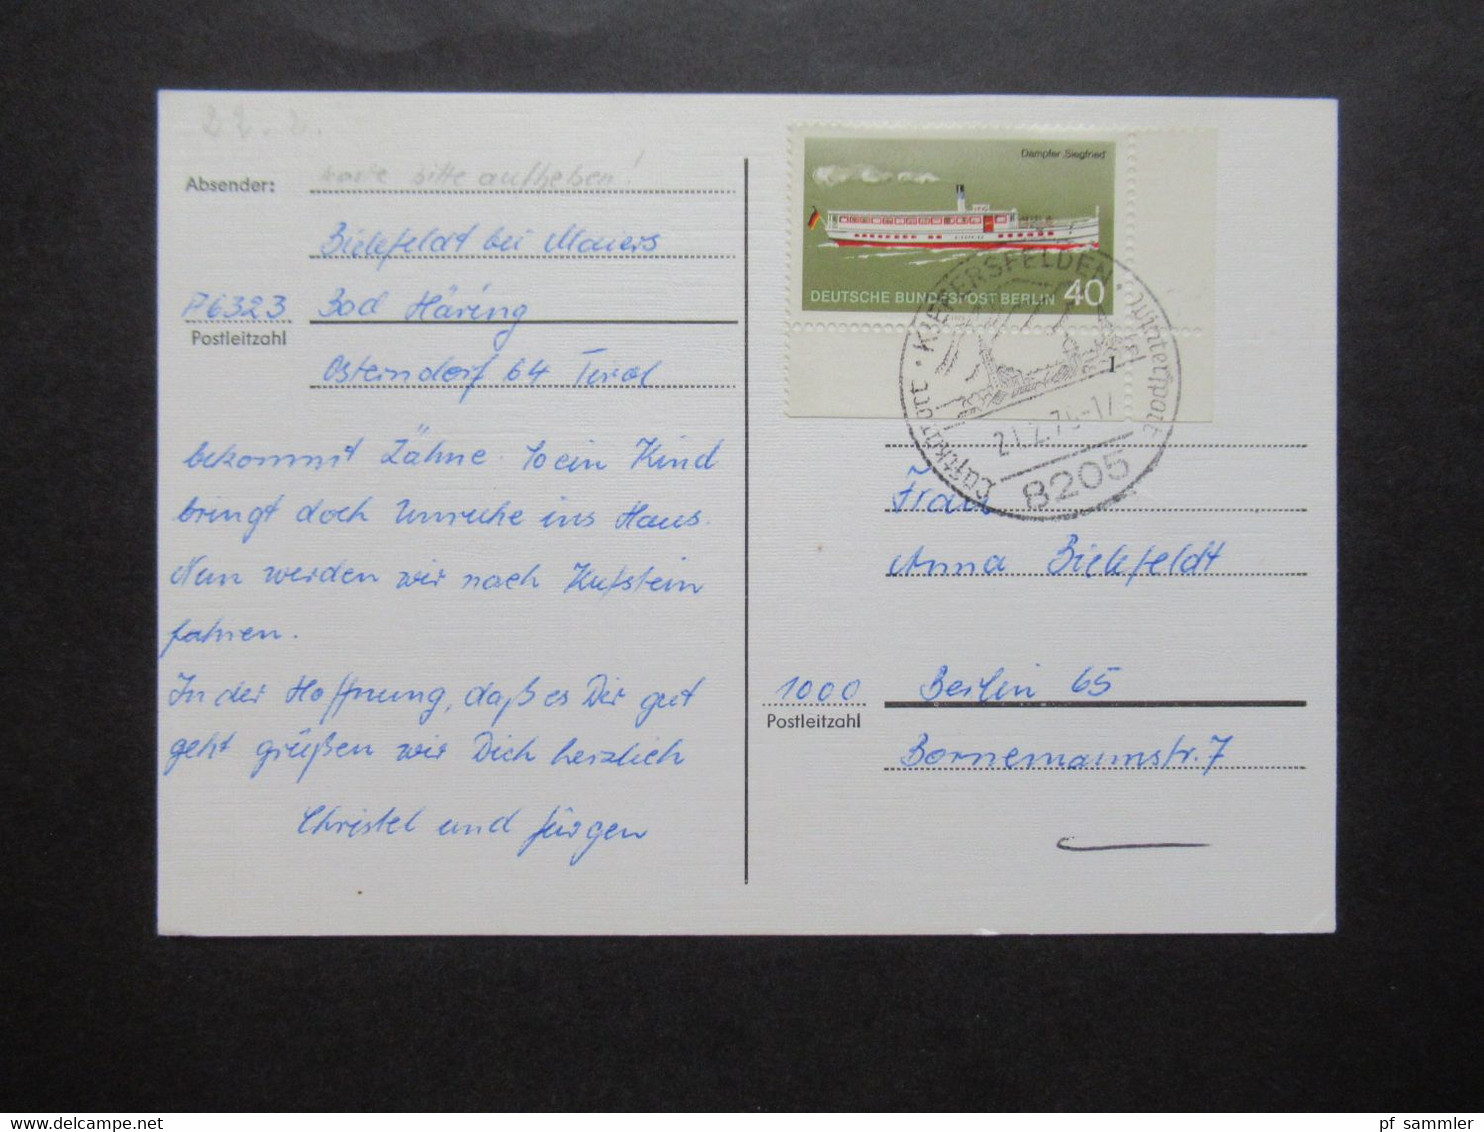 22.2.
Absender: Karte bitte aufheben!
Bielefeldt bei Maiers
A6323 Bad Häring
Postleitzahl
Osterndorf 64 Tirol
bekommt Zähne. So ein Kind
bringt doch Unruhe ins Haus.
Nun werden wir nach Kufstein
fahren.
In der Hoffnung, daß es Dir gut
geht grüßen wir Dich herzlich
Christel und Jürgen
Dampfer Siegfried
DEUTSCHE BUNDESPOST BERLIN 40
1
Luftkurort · KIEFERSFELDEN · Wintersport
21.2.75-17
8205
Frau
Anna Bielefeldt
1000 Berlin 65
Postleitzahl
Bornemannstr. 7
www.delcampe.net
pf_sammler